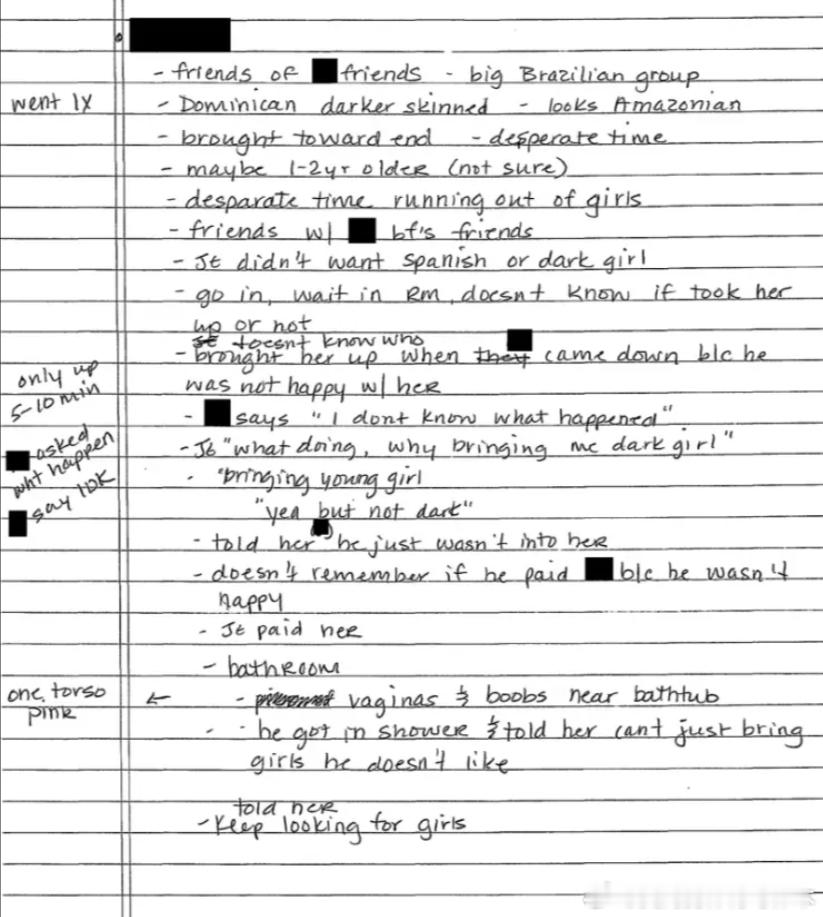 - friends of friends - big Brazilian group
went 1x
- Dominican darker skinned - looks Amazonian
- brought toward end - desperate time
- maybe 1-2yr older (not sure)
- desparate time running out of girls
- friends w/ bf's friends
- JE didn't want spanish or dark girl
- go in, wait in Rm, doesnt know if took her
up or not
doesnt know who
- brought her up when they came down b/c he
was not happy w/ her
only up
5-10 min
- says "I dont know what happened"
asked
wht happen
say 10K
- JE "what doing, why bringing me dark girl"
- "bringing young girl
"yea but not dark"
- told her he just wasn't into her
- doesn't remember if he paid b/c he wasn't
happy
- JE paid her
- bathroom
one torso
pink
← - vaginas & boobs near bathtub
- he got in shower & told her cant just bring
girls he doesn't like
told her
- Keep looking for girls